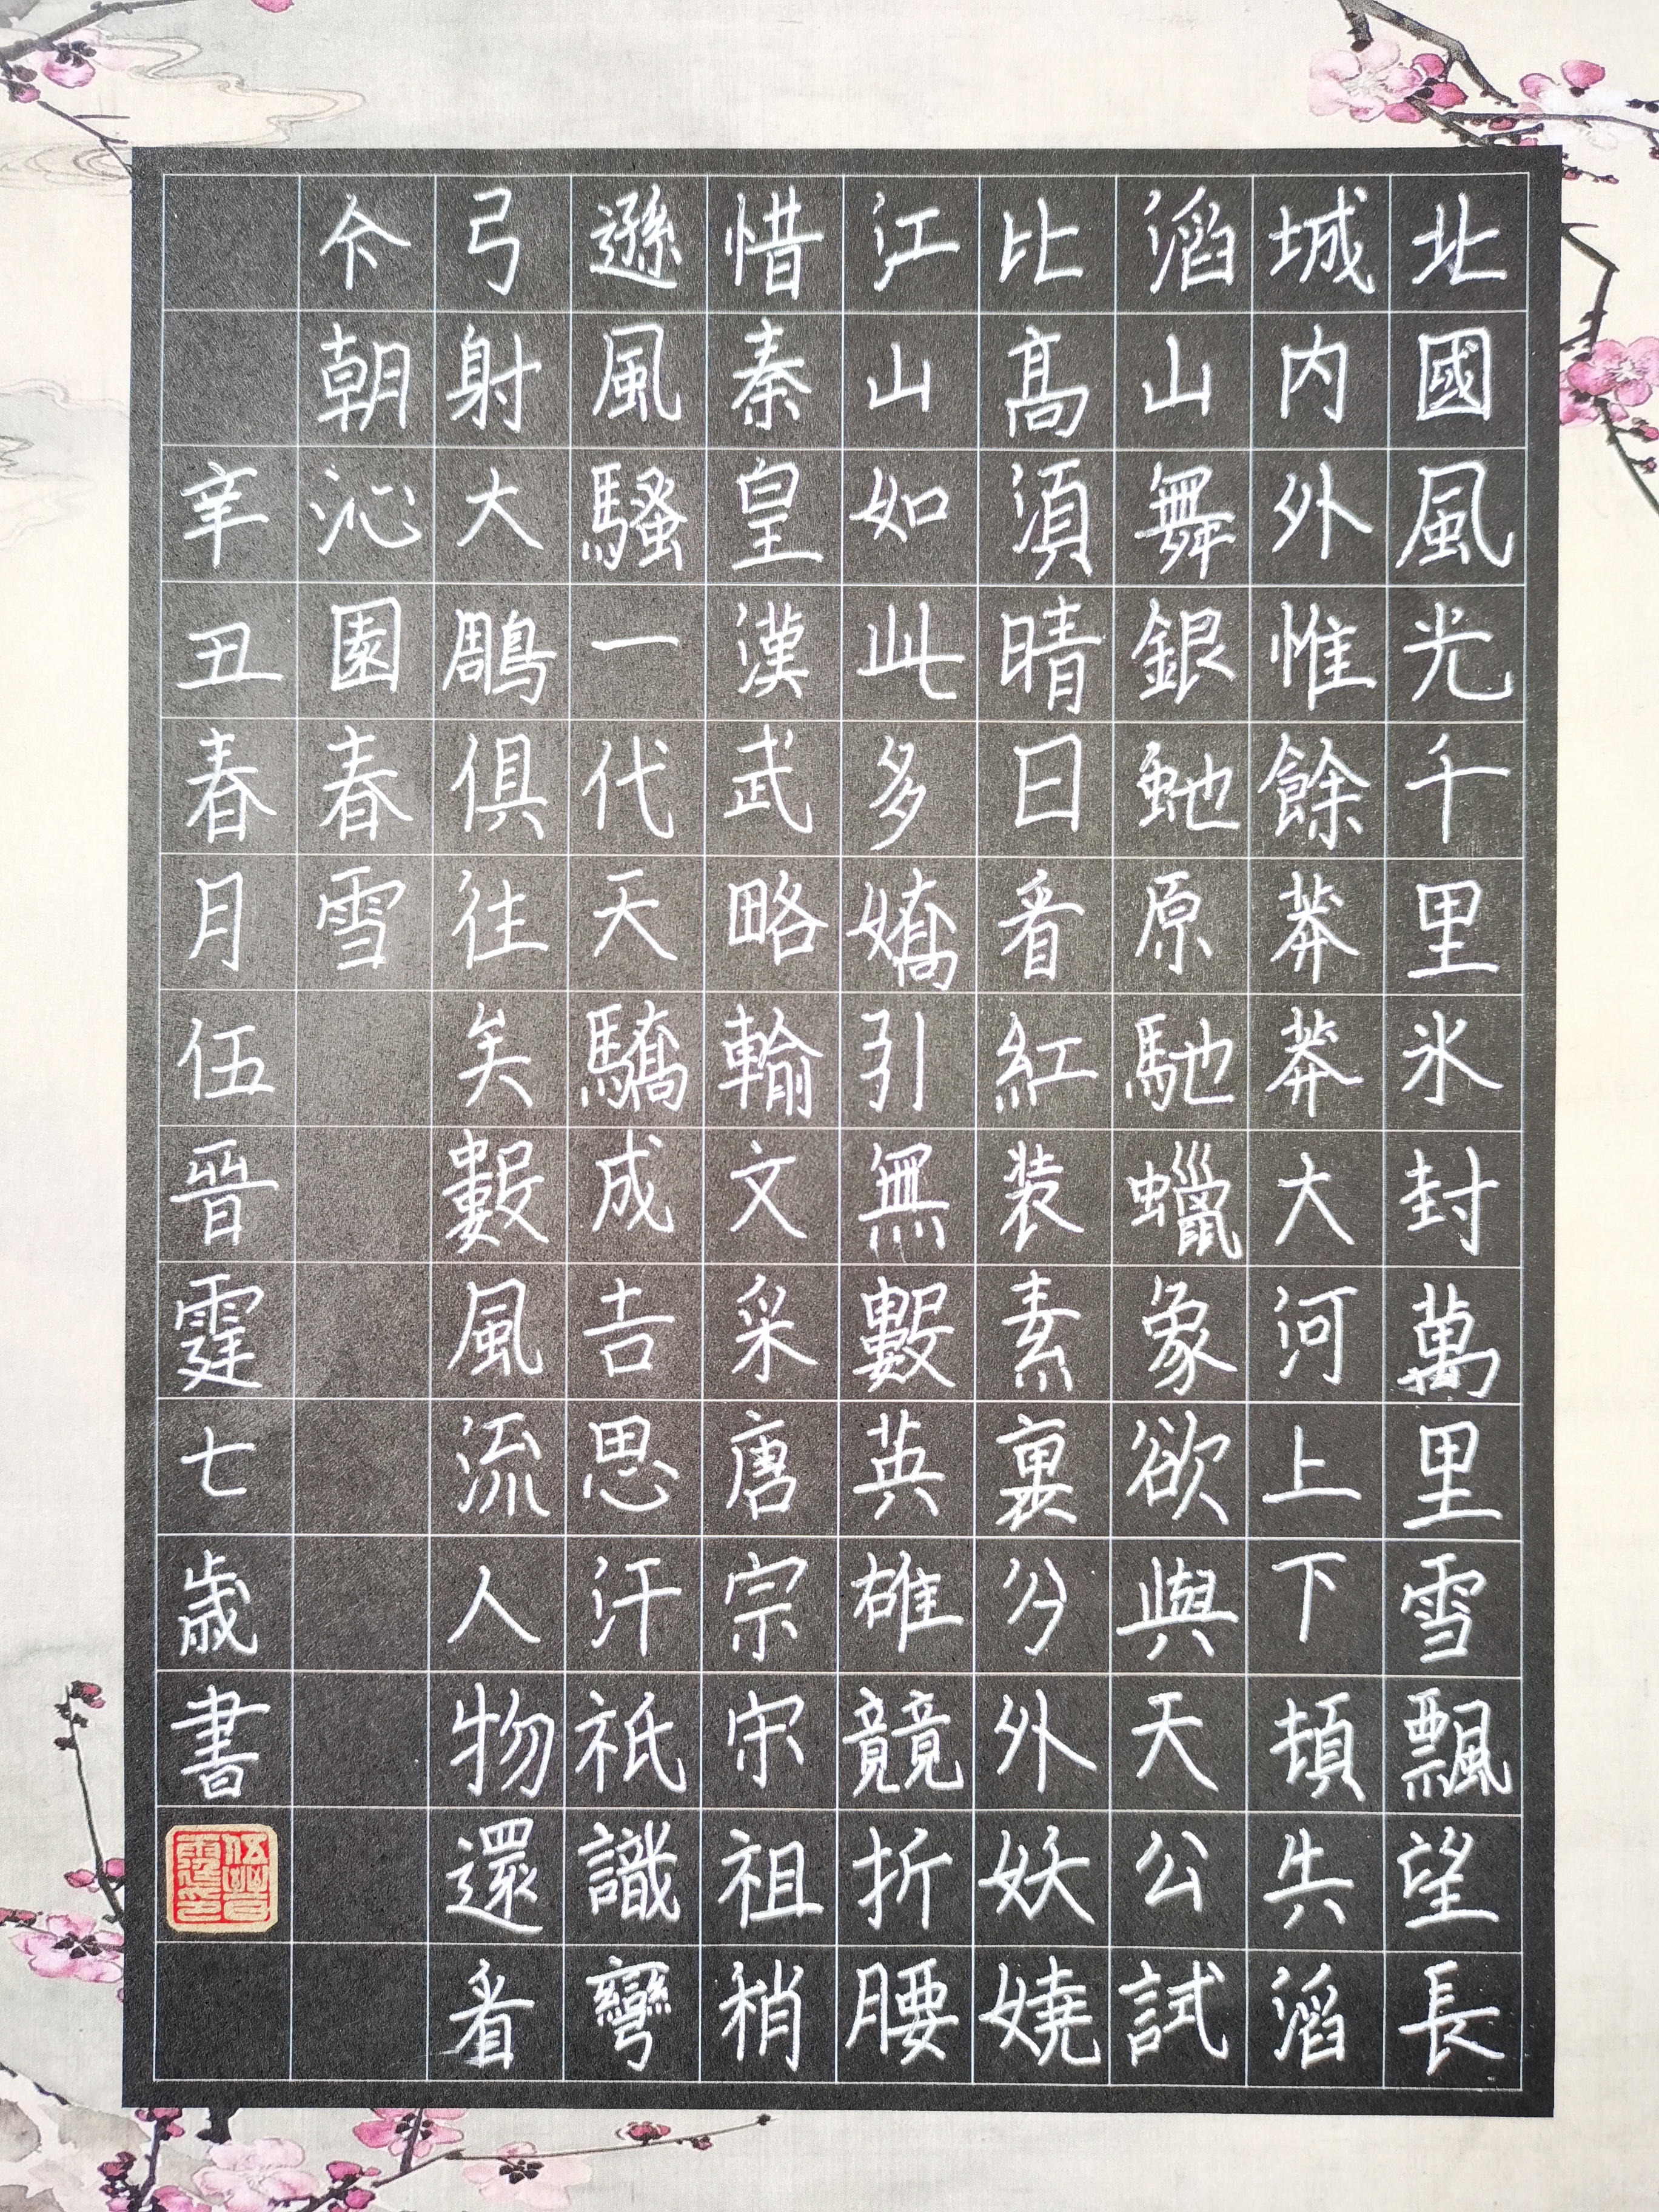 北國風光千里氷封萬里雪飄望長
城内外惟餘莽莽大河上下頓失滔
滔山舞銀虵原馳蠟象欲與天公試
比髙須晴日看紅装素裏分外妖嬈
江山如此多嬌引無數英雄競折腰
惜秦皇漢武略輸文采唐宗宋祖稍
遜風騷一代天驕成吉思汗祇識彎
弓射大鵰俱往矣數風流人物還看
今朝沁園春雪
辛丑春月伍晉霆七歲書
伍晉霆印